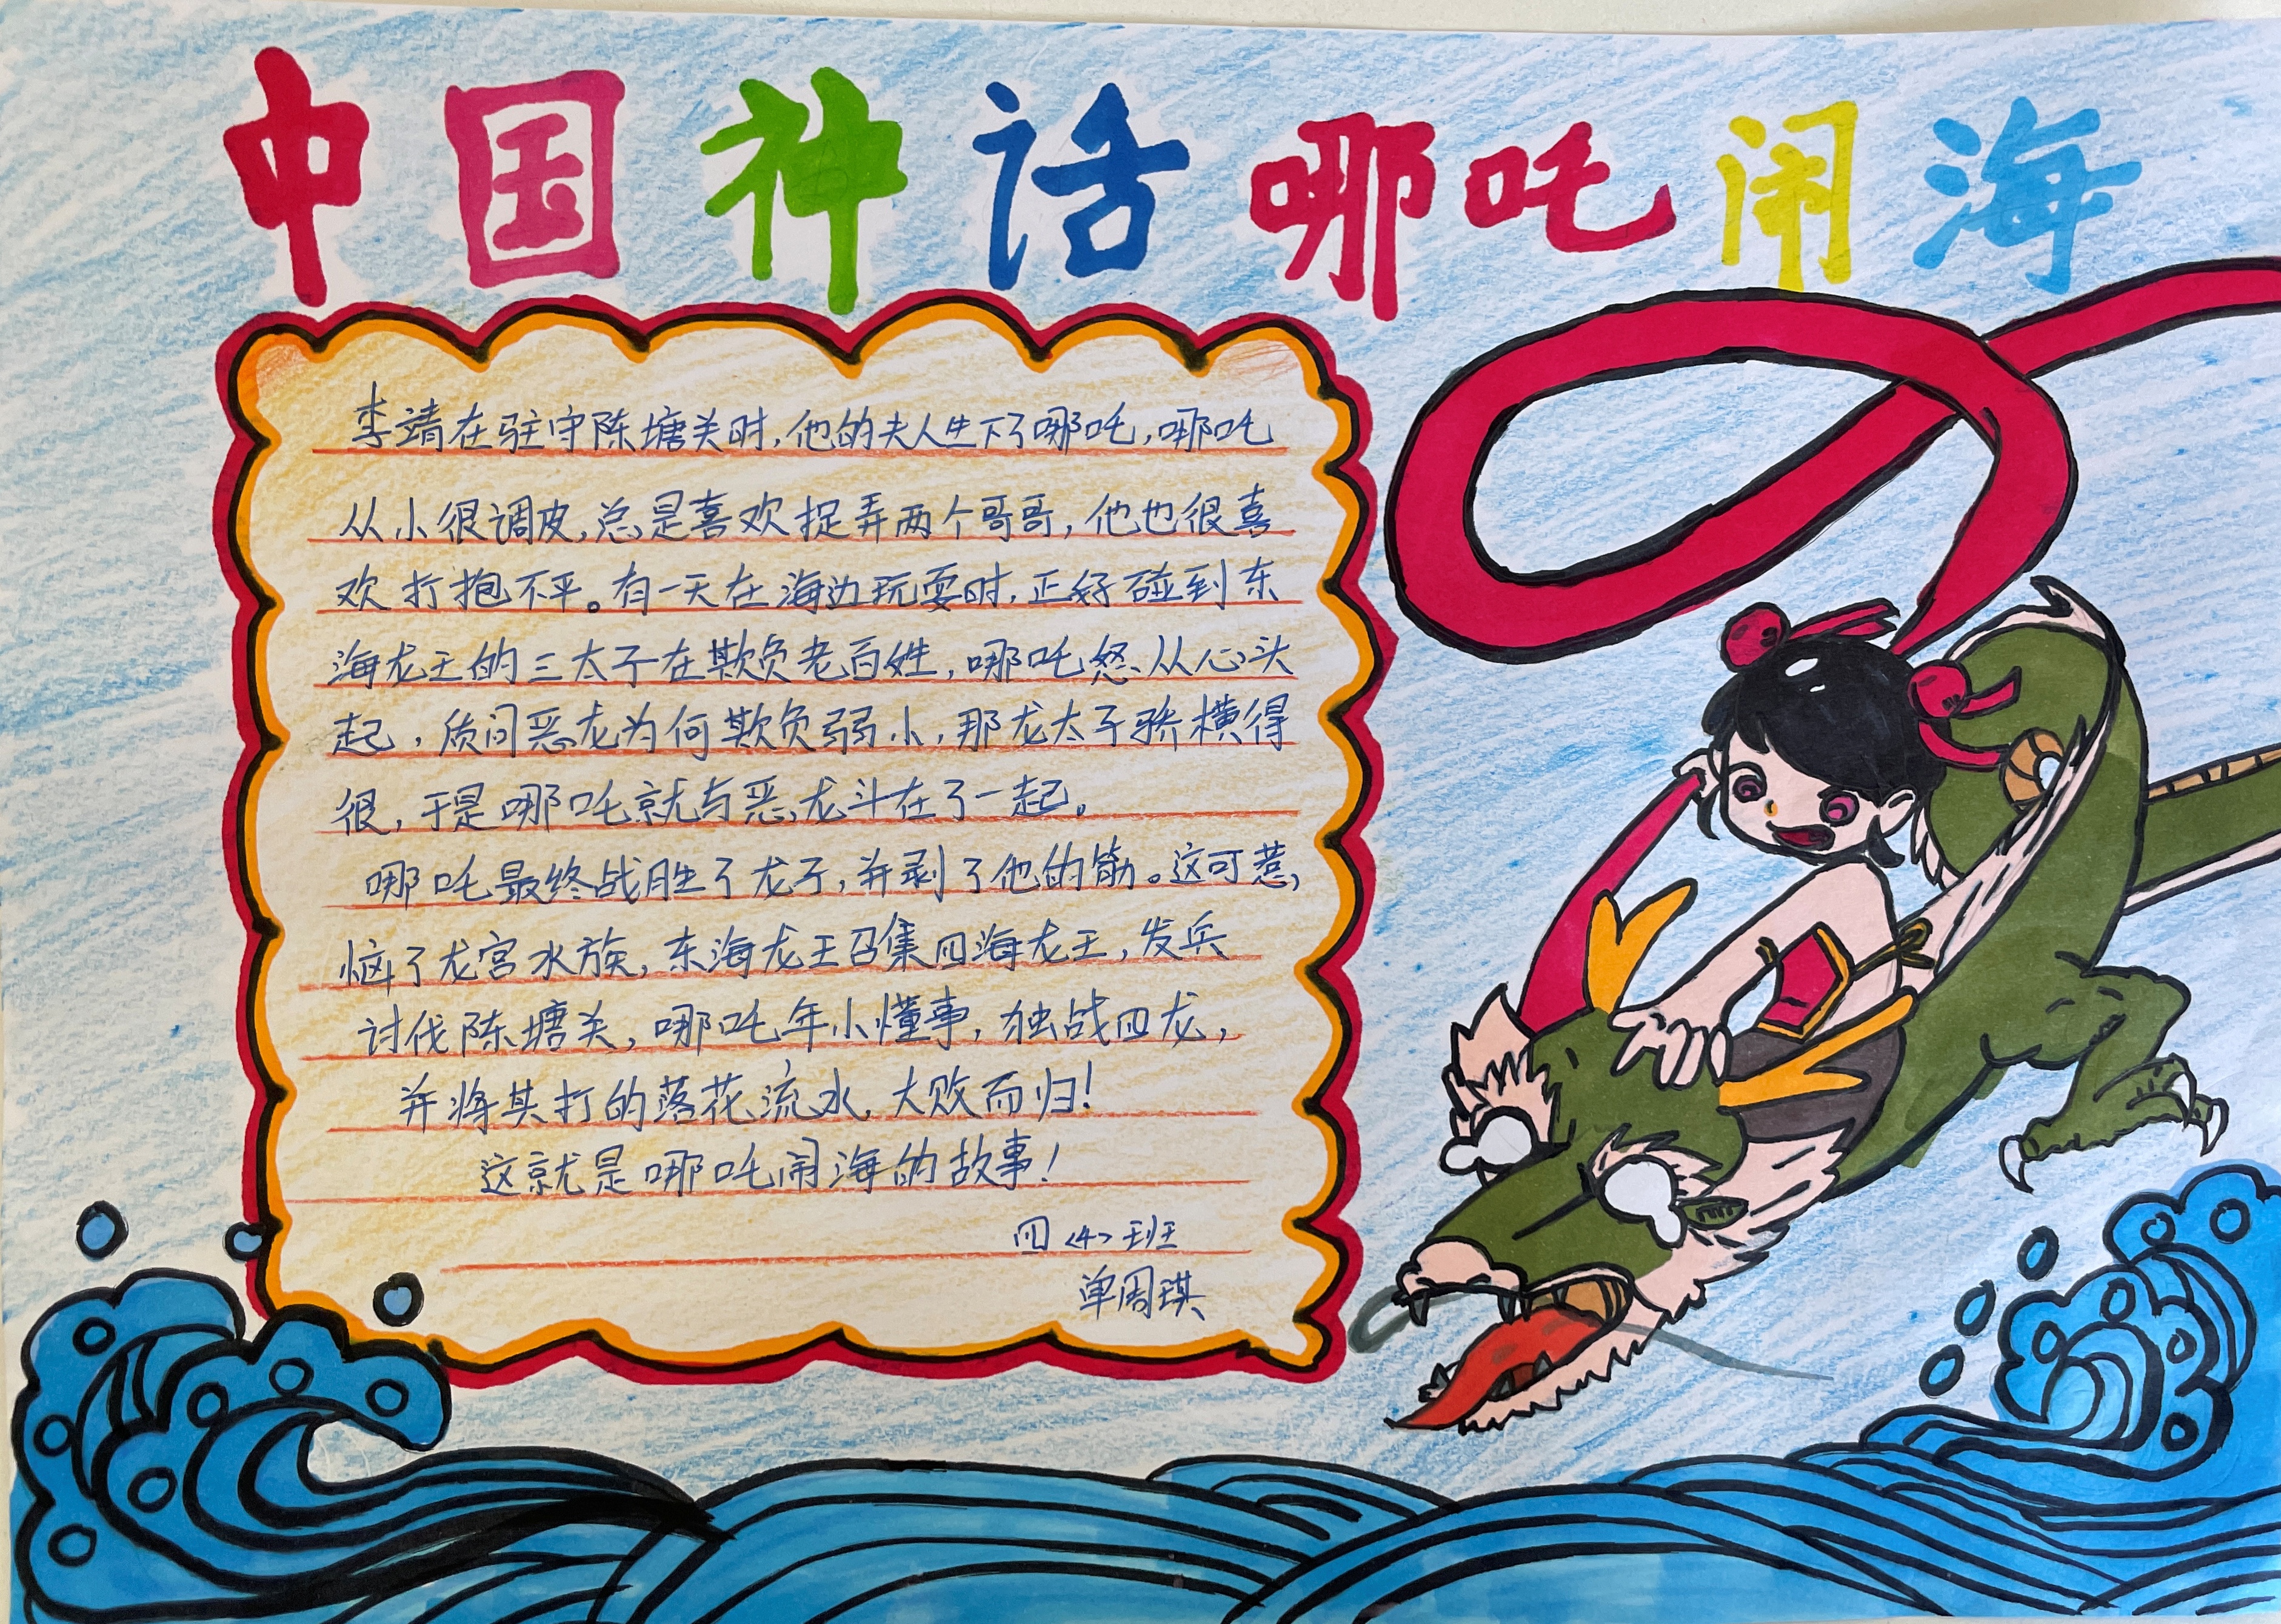 中国神话哪吒闹海
李靖在驻守陈塘关时,他的夫人生下了哪吒,哪吒
从小很调皮,总是喜欢捉弄两个哥哥,他也很喜
欢打抱不平。有一天在海边玩耍时,正好碰到东
海龙王的三太子在欺负老百姓,哪吒怒从心头
起,质问恶龙为何欺负弱小,那龙太子骄横得
很,于是哪吒就与恶龙斗在了一起。
哪吒最终战胜了龙子,并剥了他的筋。这可惹,
恼了龙宫水族,东海龙王召集四海龙王,发兵
讨伐陈塘关,哪吒年小懂事,独战四龙,
并将其打的落花流水,大败而归!
这就是哪吒闹海的故事!
四<4>班
单周琪